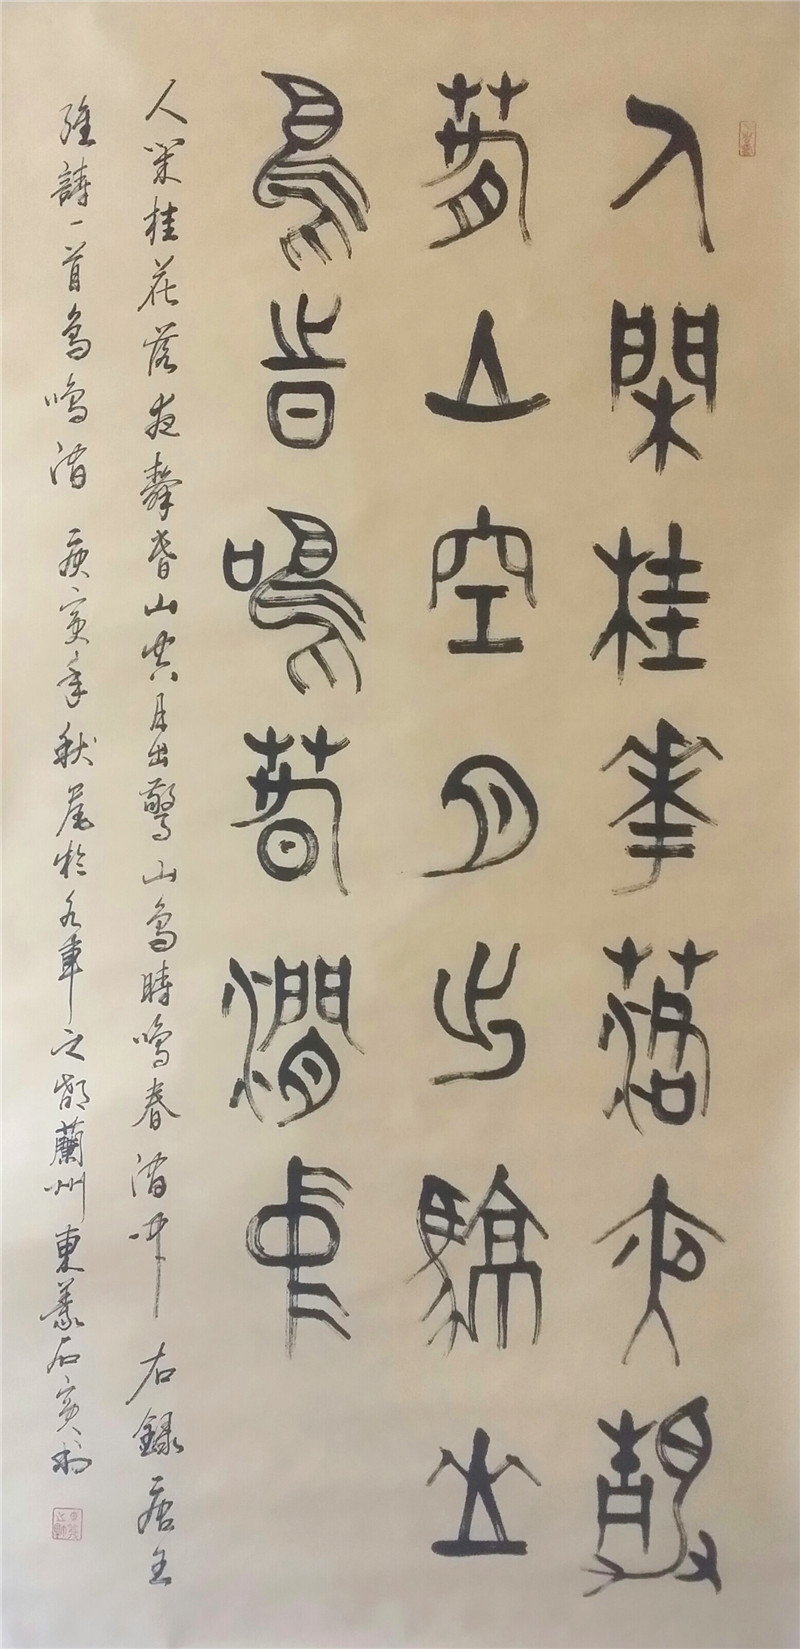 人閑桂華落夜靜
萅山空月出驚山
鳥旹鳴萅澗中
人閑桂花落夜靜春山空月出驚山鳥時鳴春澗中 右錄唐王
維詩一首鳥鳴澗 寅年秋尾於水車之都蘭州東石寅